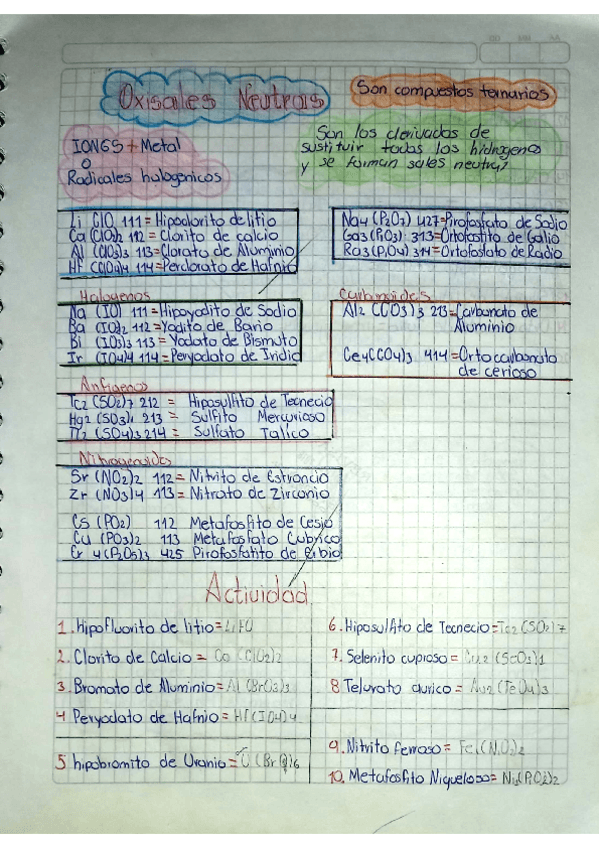 Oxisales Neutras
Son compuestos ternarios
IONES + Metal
o
Radicales halogenicos
Son los derivados de
sustituir todas los hidrogeno
y se forman sales neutra
Li ClO 111 = Hipoclorito de litio
Ca (ClO2)2 112 = Clorito de calcio
Al (ClO3)3 113 = Clorato de Aluminio
Hf (ClO4)4 114 = Perclorato de Hafnio
Na4 (P2O7) 427 = Pirofosfato de Sodio
Ga3 (PO3) 313 = Ortofosfito de Galio
Ra3 (PO4) 314 = Ortofosfato de Radio
Halogenos
Na (IO) 111 = Hipoyodito de Sodio
Ba (IO2)2 112 = Yodito de Bario
Bi (IO3)3 113 = Yodato de Bismuto
Ir (IO4)4 114 = Peryodato de Iridio
Carbonoides
Al2 (CO3)3 213 = Carbonato de
Aluminio
Ce4(CO4)3 414 = Orto carbonato
de cerioso
Anfigenos
Tc2 (SO2)7 212 = Hiposulfito de Tecnecio
Hg2 (SO3)1 213 = Sulfito Mercurioso
Tl2 (SO4)3 214 = Sulfato Talico
Nitrogenoides
Sr (NO2)2 112 = Nitrito de Estroncio
Zr (NO3)4 113 = Nitrato de Zirconio
Cs (PO2) 112 Metafosfito de Cesio
Cu (PO3)2 113 Metafosfato Cubrico
4(P2O5)3 425 Pirofosfatito de Erbio
Actividad
1. hipofluorito de litio =
2. Clorito de Calcio = Ca (ClO2)2
3. Bromato de Aluminio = Al (BrO3)3
4 Peryodato de Hafnio = Hf (IO4)4
5 hipobromito de Uranio = U (BrO)6
6. Hiposulfito de Tecnecio = Tc2 (SO2)7
7. Selenito cuprioso = Cu2 (SeO3)1
8 Telurato aurico = Au2 (TeO4)3
9. Nitrito ferroso = Fe (NO2)2
10. Metafosfito Niqueloso = Ni (PO2)2